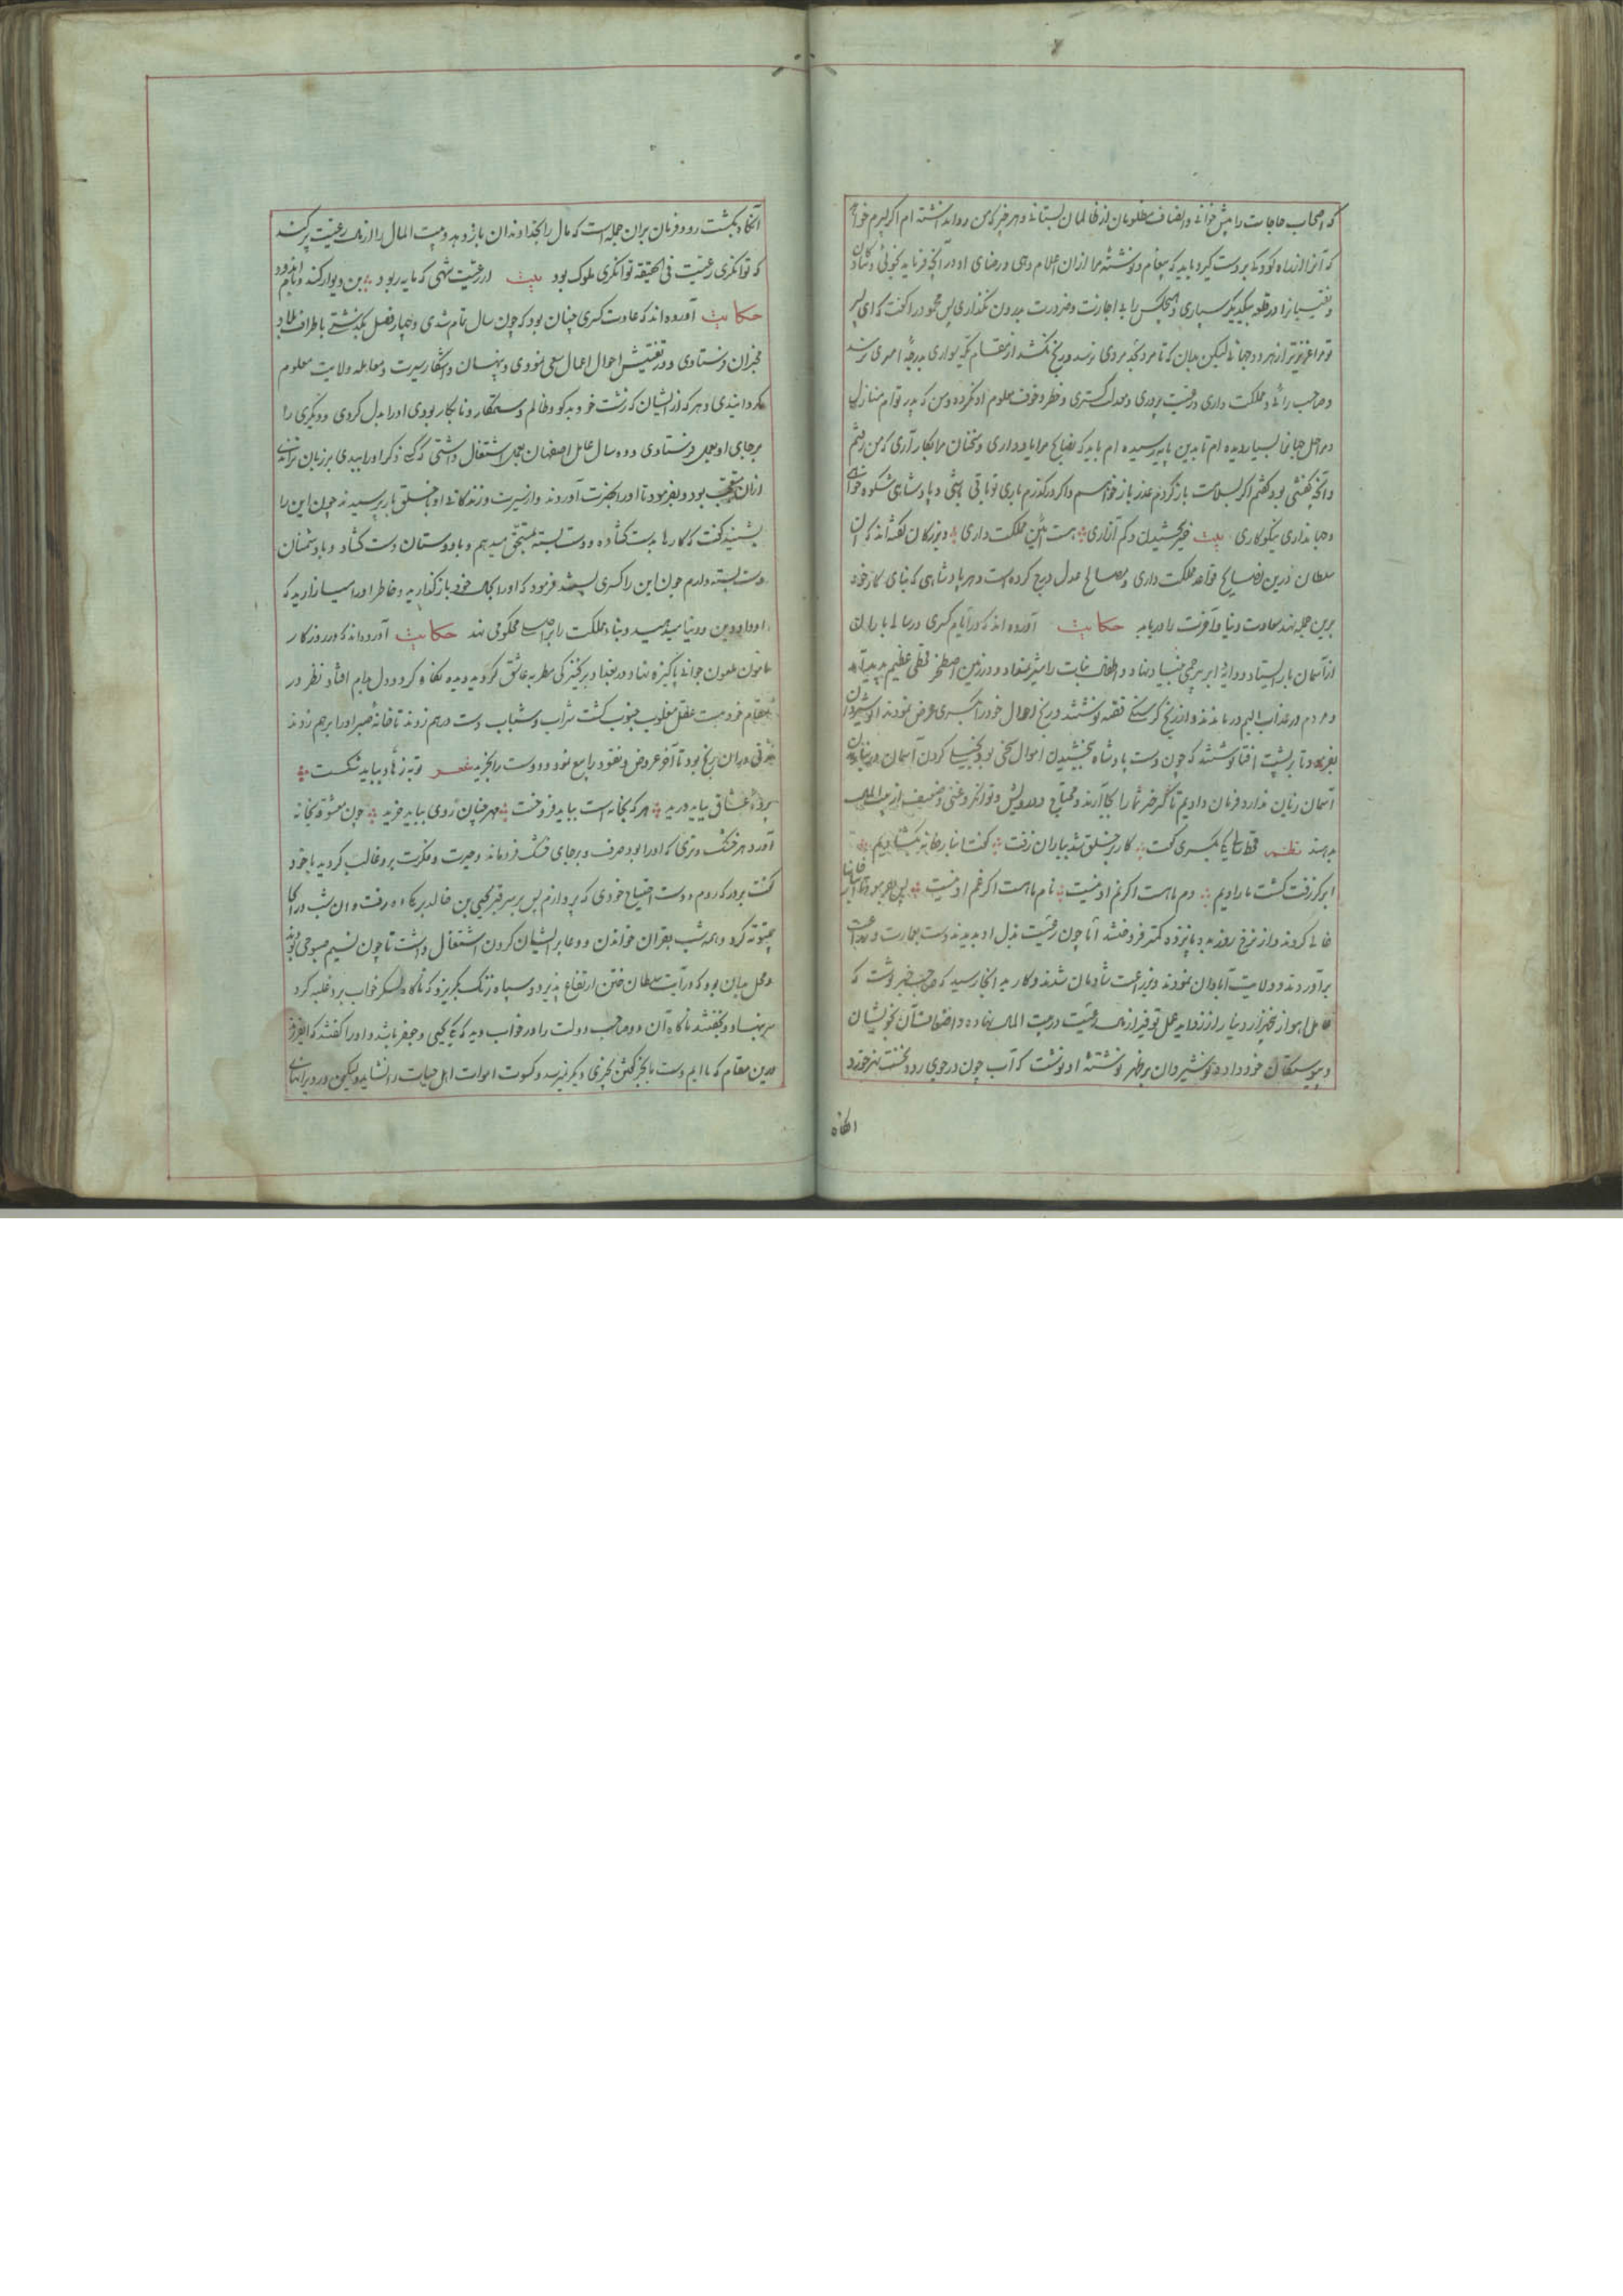 که اصحاب حاجات را پیش خوانی و انصاف مظلومان از ظالمان بستانی و هر چیز که من روا نداشته ام اگر پسرم خواهد
که آنرا از راه کودکی بر دست گیرد باید که پیغام و نوشته مرا ازان اعلام دهی و رضای او در آنچه فرماید بجوئی و
در قلعه بیکدیگر سپاری و هیچکس را بی اجازت و ضرورت بیرون نگذاری پس محمود را گفت که ای پسر
تو مرا عزیزتر از هر دو جهانی لیکن بدان که تا مرد بحد مردی نرسد و رنج نکشد از مقام بدرجهٔ امیری نرسد
و صاحب رائی و مملکت داری و رعیت پروری و عدل گستری و خطر و خوف معلوم او نگردد و من که پدر توام منازل
و مراحل جهان بسیار دیده ام تا بدین پایه رسیده ام باید که نصایح مرا یاد داری و سخنان مرا بکار آری که من رفتم
و آنچه گفتنی بود گفتم اگر بسلامت باز گردم عذر باز خواهم و اگر درگذرم باری تو باقی باشی و پادشاهی شکوه
و جهانداری نیکوکاری بیت خیر خشیدن و کم آزاری هست آئین مملکت داری و بزرگان گفته اند که آن
سلطان درین نصایح قواعد مملکت داری و مصالح عدل درج کرده است و هر پادشاهی که بنای کار خود
برین جمله نهد سعادت دنیا و آخرت را دریابد حکایت آورده اند که در ایام کسری در سالی باران
از آسمان باز ایستاد و دایهٔ ابر بی رحمی بنیاد نهاد و اطفال نبات را شیر نداد و در زمین اصطخر قحطی عظیم پدید آمد
و مردم در عذاب الیم درماندند و از رنج گرسنگی قصه نوشتند و رنج احوال خود را بکسری عرض نمودند انوشیروان
بفرمود تا بر پشت نوشتند که چون دست پادشاه ببخشیدن اموال سخی بود بخیلی کردن آسمان
آسمان زیان ندارد فرمان دادیم تا شما را بجا آرند و محتاج و درویش و توانگر و غنی و ضعیف از بیت المال
بدهند نظم قحط سالی بکسری گفت کار خلق شد بباران زفت گفت انبار خانه بگشادیم
ابر گر زفت گشت ما رادیم دم ما هست اگر نم او نیست نام ما هست اگر غم او نیست پس بفرمود تا انبارخانها
خالی کردند و از نرخ روز ده پانزده کمتر فروختند تا چون رعیت بذل او بدیدند دست بعمارت و زراعت
برآوردند و ولایت آبادان نمودند و بزراعت شادمان شدند و کار بدانجا رسید که صاحب خبر نوشت که
عامل اهواز هزار دینار از زواید عمل توفیر از مال رعیت در بیت المال نهاده و اضعاف آن بخویشان
و پیوستگان خود داده نوشیروان بر ظهر نوشتهٔ او نوشت که آب چون در جوی رود نخست نهر خورد
انگاه
آنگاه بکشت رود فرمان بران جمله است که مال را بخداوندان باز دهد و بیت المال را از مال رعیت پر نکند
که توانگری رعیت فی الحقیقه توانگری ملوک بود بیت از رعیت شهی که مایه ربود بن دیوار کند و بام اندود
حکایت آورده اند که عادت کسری چنان بود که چون سال تمام شدی و چهار فصل بگذشتی باطراف بلاد
مخبران فرستادی و در تفتیش احوال اعمال سعی نمودی و پنهان و آشکار سیرت و معامله ولایت معلوم
گردانیدی و هر که از ایشان که زشت خو و بدگو و ظالم و ستمکار و نابکار بودی او را بدل کردی و دیگری را
بر جای او بعمل فرستادی و ده سال عامل اصفهان بعمل اشتغال داشتی که کسی ذکر او را ببدی بر زبان نراندی
ازان متعجب بود و بفرمود تا او را بحضرت آوردند و از سیرت و زندگانی او با خلق باز پرسیدند چون این را
بشنید گفت که کارها بدست گشاده و دست بسته بمستحق میدهم و با دوستان دست گشاد و با دشمنان
دست بسته دارم چون این را کسری بشنید فرمود که او را بکار خود باز گذارید و خاطر او را میازارید که
او داد دین و دنیا میدهد و بناء مملکت را بر اصل محکومی نهد حکایت آورده اند که در روزگار
مامون ملعون جوانی پاکیزه نهاد در بغداد بر کنیزکی مطربه عاشق گردید و دیده نگاه کرد و دل بدام افتاد نظر در
مقام فرصت عقل مغلوب جنون گشت شراب و شباب دست درهم زدند تا خانهٔ صبر او را برهم زدند
مدتی دران رنج بود تا آخر عروض و نقود را بیع نمود و دوست را بخرید شعر توبه زهاد بباید شکست
پردهٔ عشاق بباید درید هر که بجانه است بباید فروخت مهر چنان روی بباید خرید چون معشوقه بخانه
آورد هر خشک و تری که او را بود صرف و بر جای خشک فرو ماند و حیرت و فکرت برو غالب گردید با خود
گفت بر در که روم و دست احتیاج خودی که بردارم پس بر سر قبر یحیی بن خالد برمک راه رفت و آن شب در آنجا
بیتوته کرد و همه شب بقرآن خواندن و دعا بر ایشان کردن اشتغال داشت تا چون نسیم صبوحی
و محل بدان بود که رایت سلطان ختن ارتفاع پذیرد و سپاه زنگ بگریزد که ناگاه لشکر خواب برو غلبه کرد
سر بنهاد و بخفت ناگاه آن دو صاحب دولت را در خواب دید که یحیی و جعفر باشد و او را گفتند که ای عزیز
درین مقام که مائیم دست ما بجز گفتن بچیزی دیگر نرسد و کسوت اموات اهل حیات را نشاید ولیکن در ویرانهای